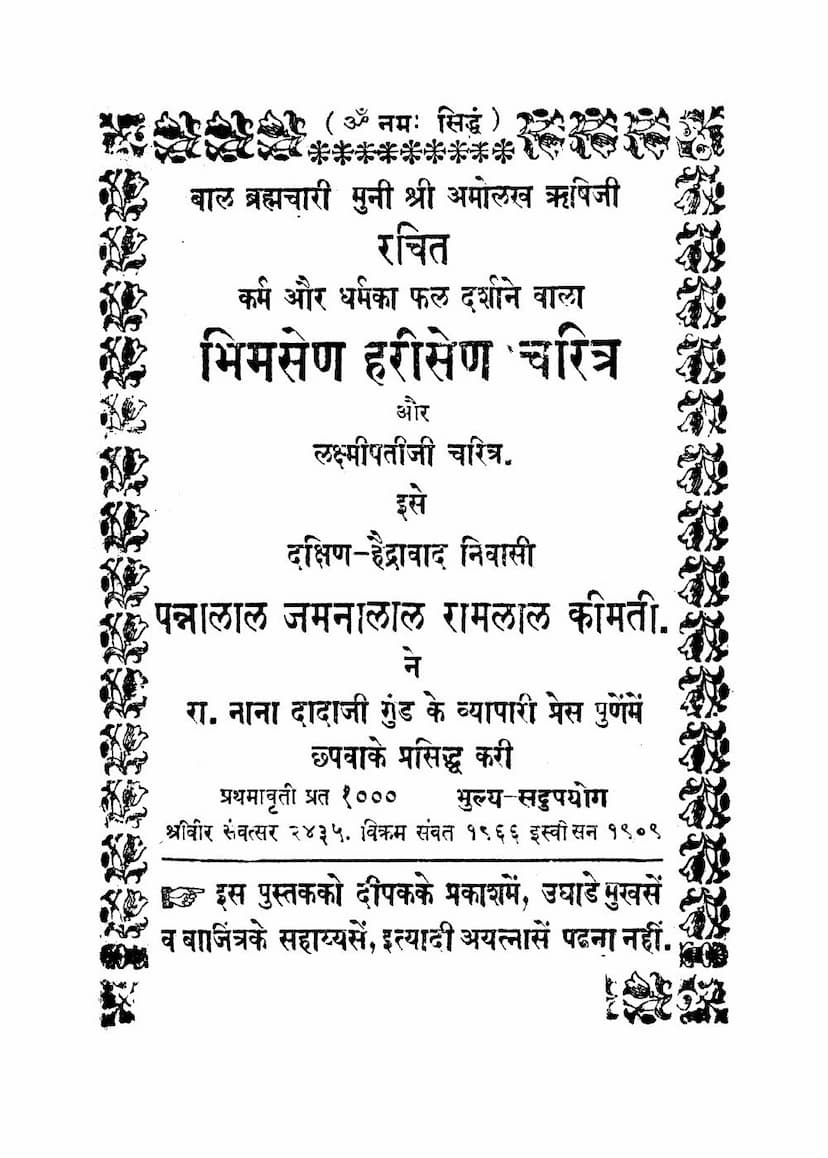 ( ॐ नमः सिद्धं )
बाल ब्रह्मचारी मुनी श्री अमोलख ऋषिजी
रचित
कर्म और धर्मका फल दर्शाने वाला
भिमसेण हरीसेण चरित्र
और
लक्ष्मीपतीजी चरित्र.
इसे
दक्षिण-हैद्रावाद निवासी
पन्नालाल जमनालाल रामलाल कीमती.
ने
रा. नाना दादाजी गुंड के व्यापारी प्रेस पुणेंमें
छपवाके प्रसिद्ध करी
प्रथमावृती प्रत १००० भुल्य-सदुपयोग
श्रीवीर संवत्सर २४३५. विक्रम संवत १९६६ इस्वी सन १९०९
☞ इस पुस्तकको दीपकके प्रकाशमें, उघाडे मुखसें
व बाजिंत्रके सहाय्यसें, इत्यादी अयत्नासें पढना नहीं.